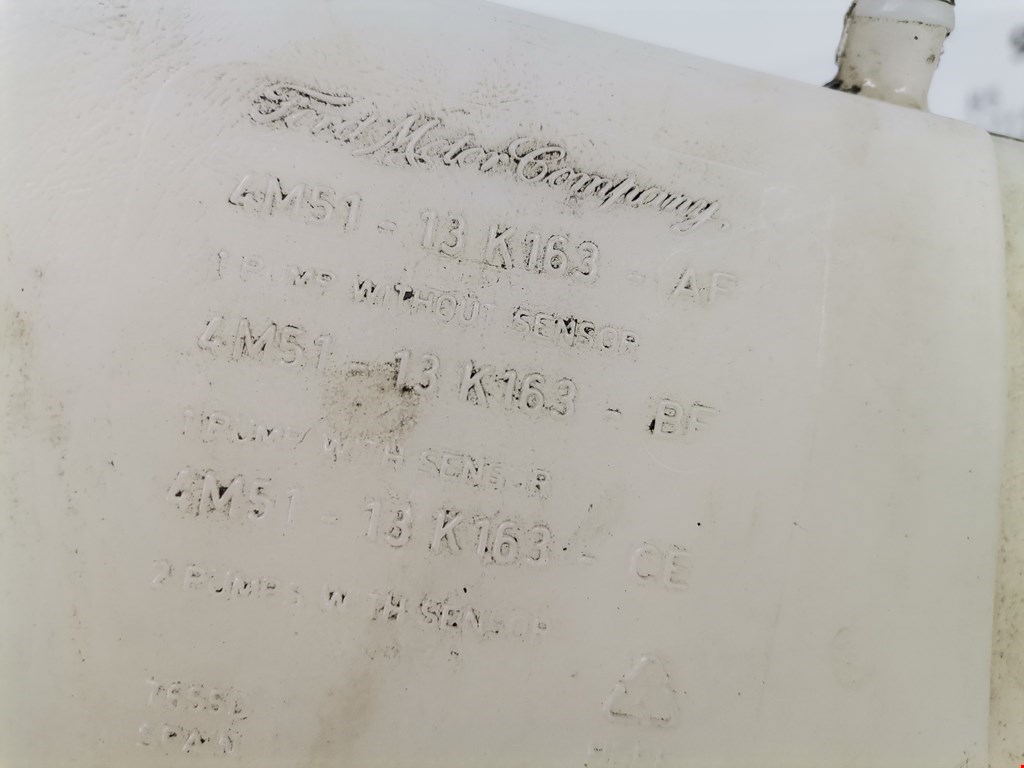 Ford Motor Company.
4M51 - 13 K163 - AF
1 PUMP WITHOUT SENSOR
4M51 - 13 K163 - BF
1 PUMP WITH SENSOR
4M51 - 13 K163 - CE
2 PUMPS WITH SENSOR
SPAIN